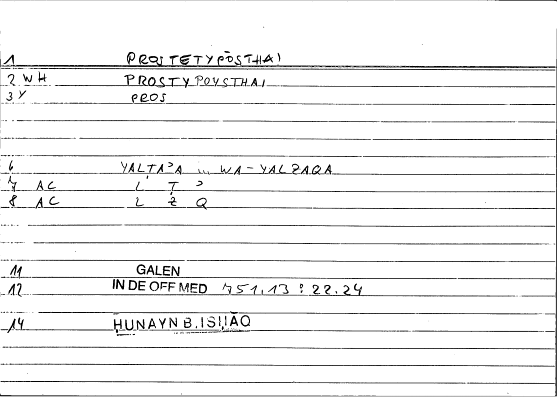 1 PROSTETYPŌSTHAI
2 WH PROSTYPOYSTHAI
3 Y PROS
6 YALTAʾA ... WA-YALZAQA
7 AC L T ʾ
8 AC L Z Q
11 GALEN
12 IN DE OFF MED 751.13 : 22.24
14 ḤUNAYN B. ISḤĀQ